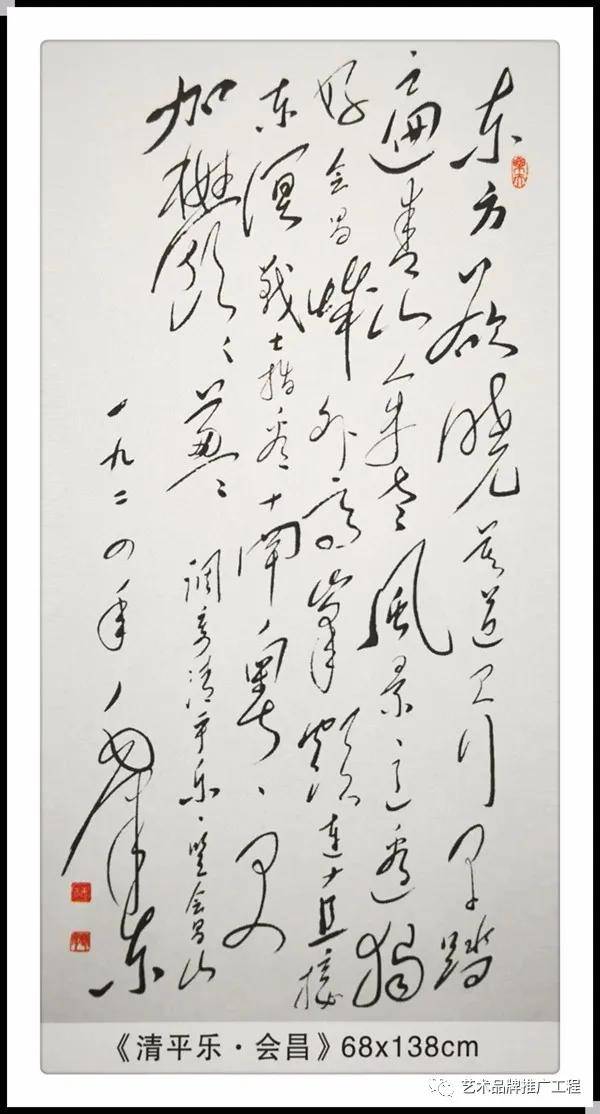 东方欲晓莫道君行早踏
遍青山人未老风景这边独
好会昌城外高峰颠连直接
东溟战士指看南粤更
加郁々葱々
调寄清平乐·登会昌山
一九三四年 毛泽东
《清平乐·会昌》68x138cm
艺术品牌推广工程